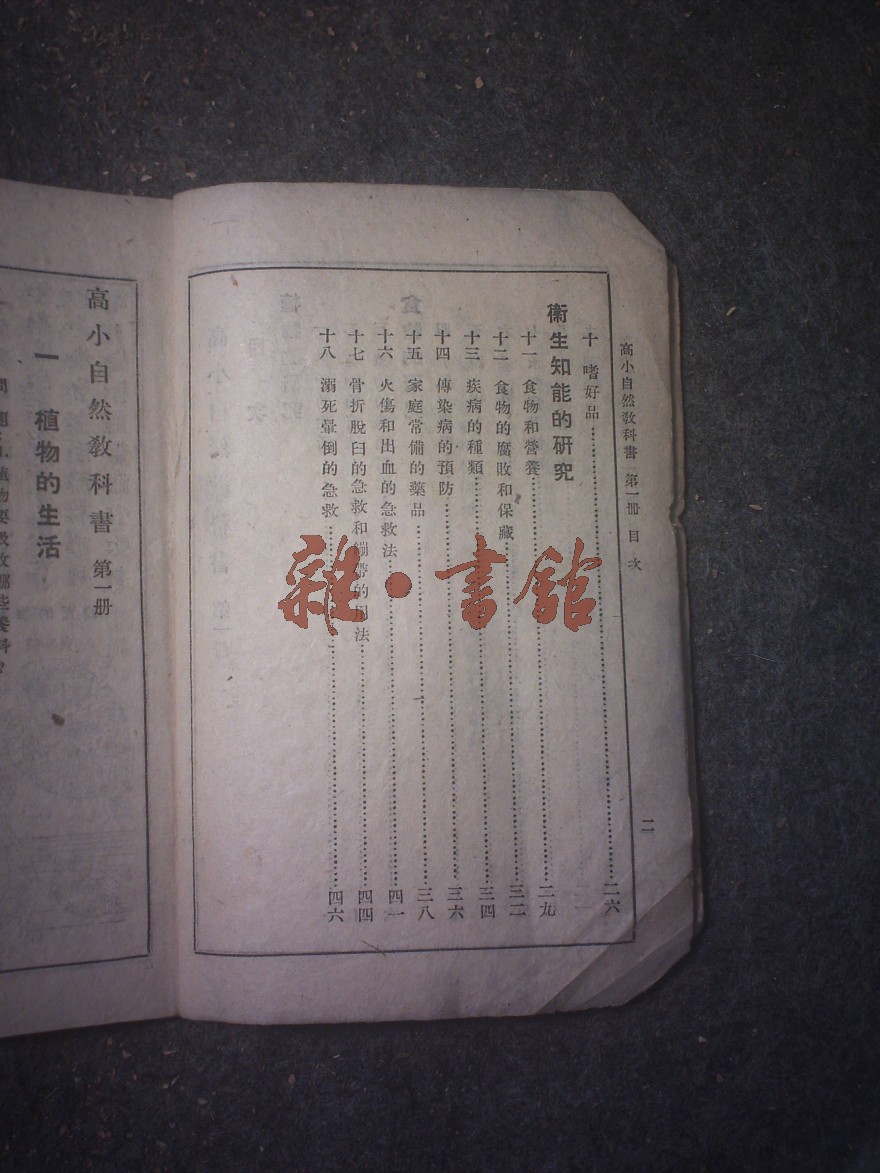 高小自然教科書 第一册 目次
二
十 嗜好品……二六
衞生知能的研究
十一 食物和營養……二九
十二 食物的腐敗和保藏……三二
十三 疾病的種類……三四
十四 傳染病的預防……三六
十五 家庭常備的藥品……三八
十六 火傷和出血的急救法……四一
十七 骨折脫臼的急救和綳帶的用法……四四
十八 溺死暈倒的急救……四六
高小自然教科書 第一册
一 植物的生活
雜·書館